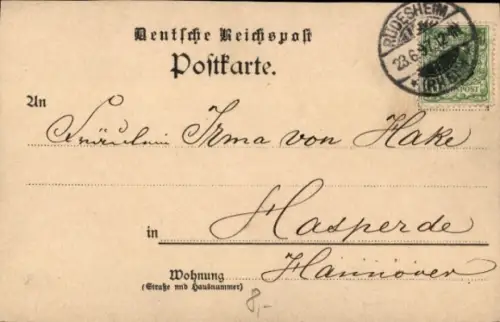 Deutsche Reichspost
Postkarte.
RÜDESHEIM
23.6.97.12-1N
*(RHEIN)
An
Fräulein Irma von Hake
in
Hasperde
Hannover
Wohnung
(Straße und Hausnummer)
8,-